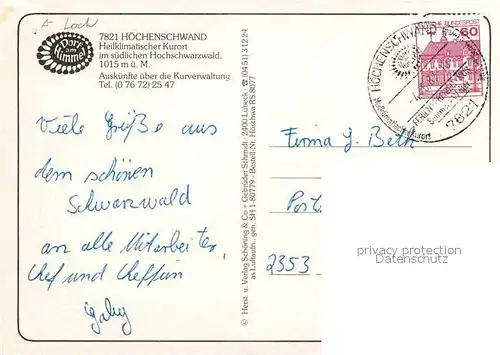 A- Loch
Dorf am Himmel
7821 HÖCHENSCHWAND
Heilklimatischer Kurort
im südlichen Hochschwarzwald,
1015 m ü. M.
Auskünfte über die Kurverwaltung
Tel. (0 76 72) 25 47
Viele Grüße aus
dem schönen
Schwarzwald
an alle Mitarbeiter,
Chef und Cheffin
Gaby
© Herst. u. Verlag Schöning & Co + Gebrüder Schmidt · 2400 Lübeck · ☎ (04 51) 3 12 24
as Luftaufn. gen. SH 1-80779 · Bestell-Nr. Höschwa RS 8077
HÖCHENSCHWAND
Heilklimatischer Kurort
7821
BUNDESPOST
60
Firma G. Beth
Post
2353
privacy protection
Datenschutz